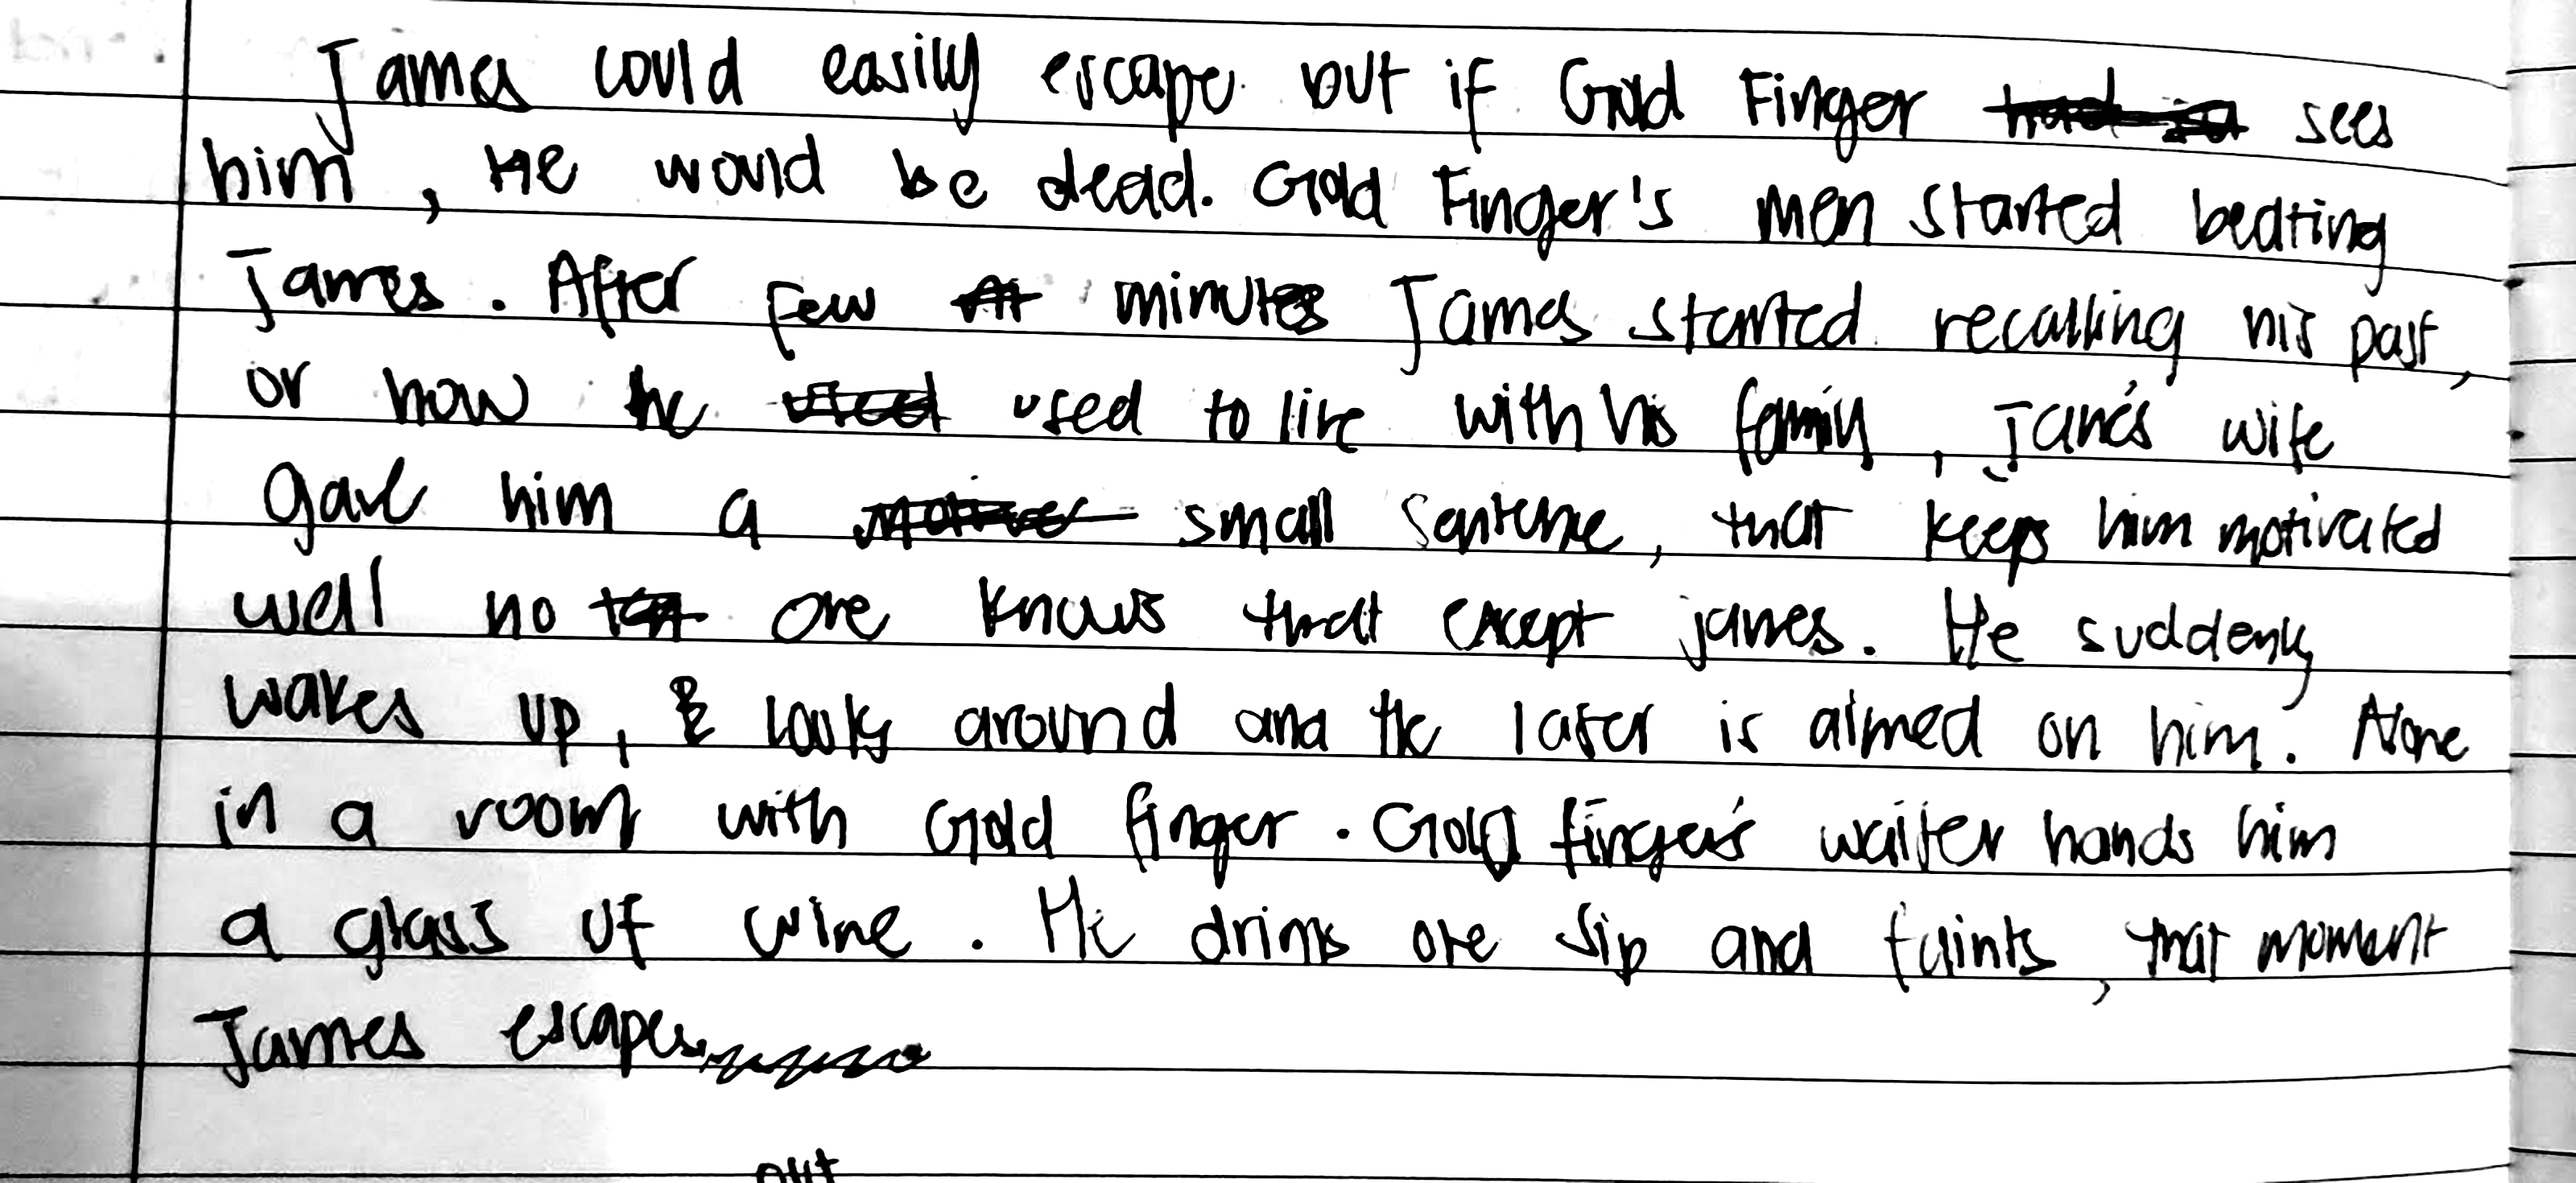 James could easily escape but if Gold Finger sees
him, He would be dead. Gold Finger's men started beating
James. After few minutes James started recalling his past,
or how he used to live with his family, Jame's wife
gave him a small sentence, that keeps him motivated
well no one knows that except james. He suddenly
wakes up, & looks around and the laser is aimed on him. Alone
in a room with Gold finger. Gold finger's waiter hands him
a glass of wine. He drinks one sip and faints, that moment
James escapes
out